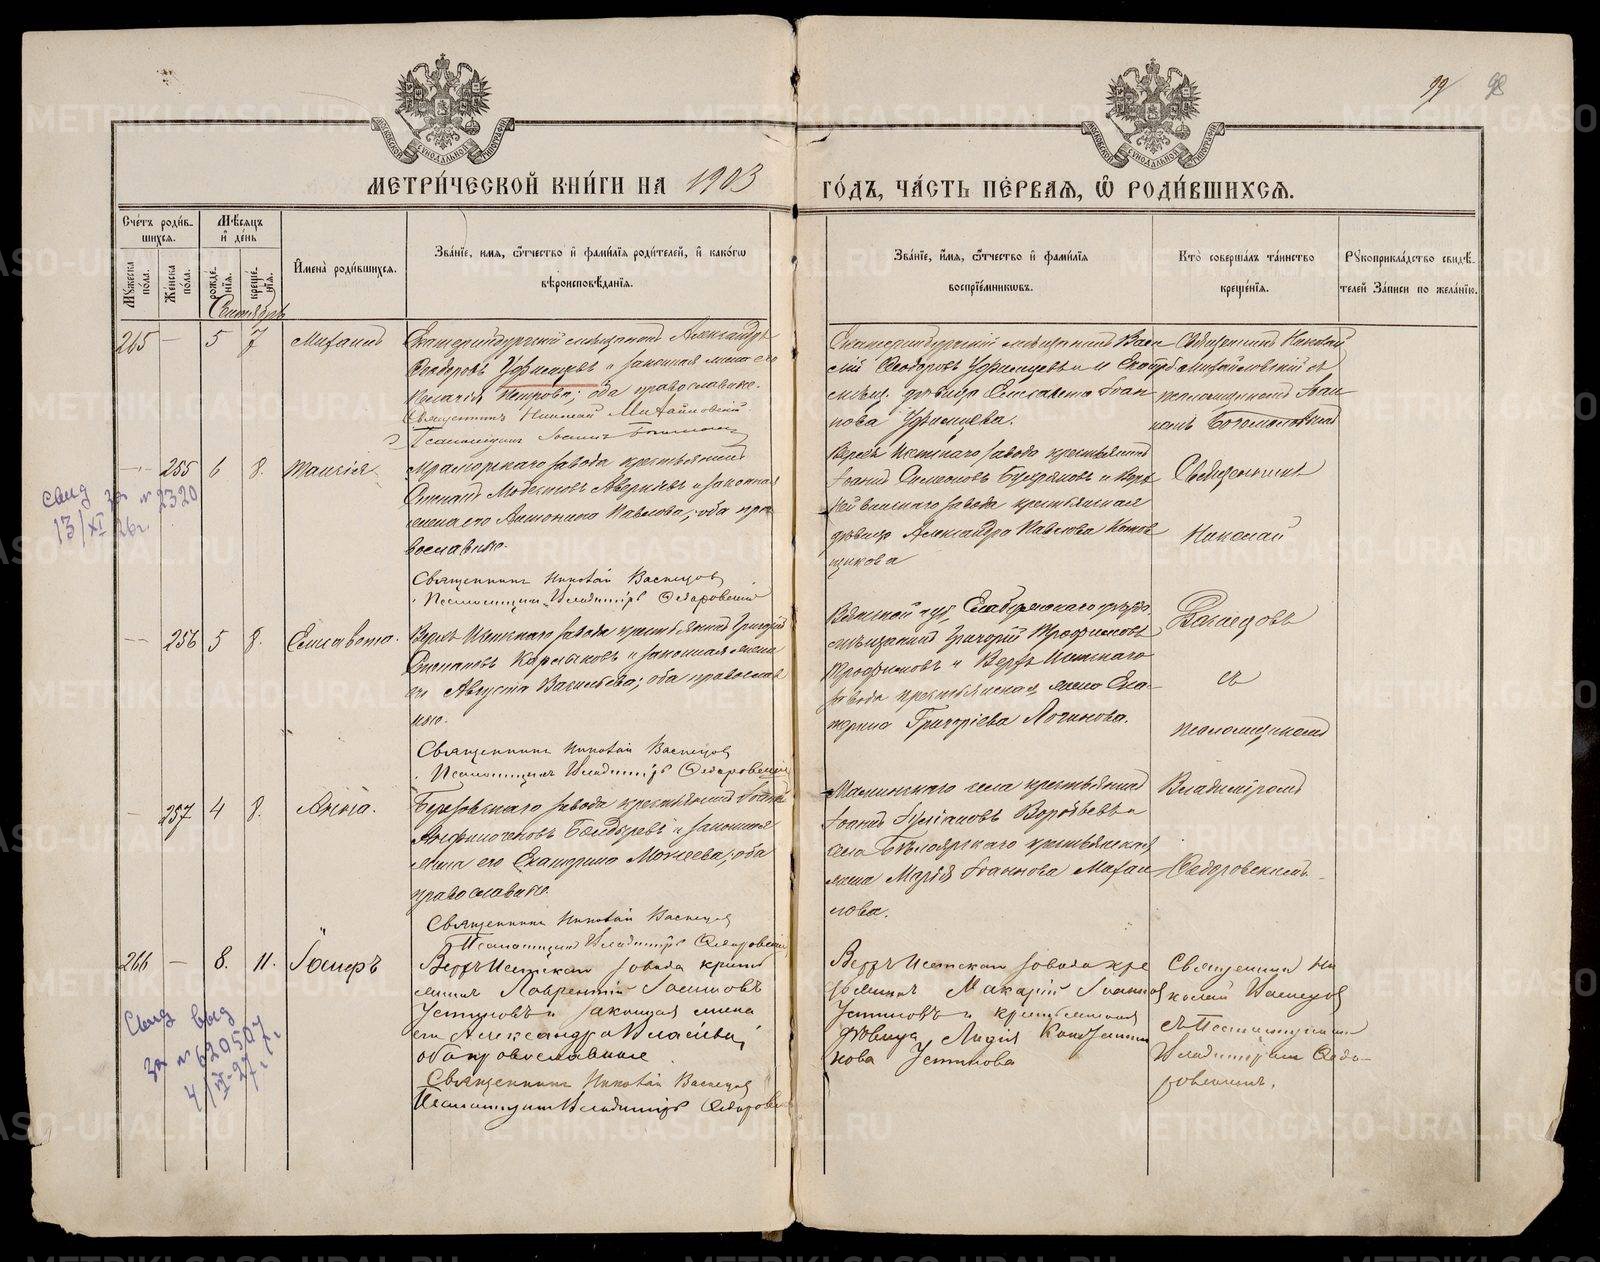 99 98
МЕТРИ́ЧЕСКОЙ КНИ́ГИ НА 1903
ГО́ДЪ, ЧА́СТЬ ПЕ́РВАѦ, Ѿ РОДИ́ВШИХСѦ.
Сче́тъ роди́в-
шихсѧ.
Мужеска по́ла.
Же́нска по́ла.
Мѣ́сѧцъ
и҆ де́нь
рожде́нїѧ.
креще́нїѧ.
И҆мена̀ роди́вшихсѧ.
Зва́нїе, и҆мѧ, ѻ҆́тчество и҆ фами́лїѧ роди́телей, и҆ како́гѡ
вѣроисповѣ́данїѧ.
Зва́нїе, и҆́мѧ, ѻ҆́тчество и҆ фами́лїѧ
воспрїе́мниковъ.
Кто̀ соверша́лъ та́инство
креще́нїѧ.
Рꙋкоприкла́дство свидѣ́-
телей За́писи по жела́нїю.
Сентябрь
265 — 5 7 Михаилъ
Екатеринбургскій мѣщанинъ Александръ
Ѳеодоровъ Уфимцевъ и законная жена его
Петрова; оба православные.
Священникъ Николай Михайловскій
Псаломщикъ Іоаннъ
Екатеринбургскій мѣщанинъ Васи-
лій Ѳеодоровъ Уфимцевъ и Екатерб
мѣщ. дѣвица Елисавета Іоан-
нова Уфимцева.
Священникъ Николай
Михайловскій съ
псаломщикомъ Іоан-
номъ
— 255 6 8. Таисія
Мраморскаго завода крестьянинъ
Степанъ Модестовъ Аверкіевъ и законная
жена его Антонина Павлова; оба пра-
вославные.
Священникъ Николай Васнецов
Псаломщикъ Владиміръ Ѳедоровскій
Верхъ Исетскаго завода крестьянинъ
Іоаннъ Симоновъ и Верх
Нейвинскаго завода крестьянская
дѣвица Александра Павлова
Священникъ
Николай
Васнецовъ
съ
псаломщикомъ
Владиміромъ
Ѳедоровскимъ.
свид за № 2320
13/XI 26г.
— 256 5 8. Елисавета.
Верхъ Исетскаго завода крестьянинъ Григорій
Степановъ и законная жена
его Августа Васильева; оба православ
ные.
Священникъ Николай Васнецов
Псаломщикъ Владиміръ Ѳедоровскій
Вятской губ. Елабужскаго уѣзда
мѣщанинъ Григорій Трофимовъ
Трофимовъ и Верхъ Исетскаго
завода крестьянская жена Ека-
терина Григоріева Логинова.
— 257 4 8. Анна.
завода крестьянинъ Іоаннъ
и законная
жена его Екатерина Моисеева; оба
православные.
Священникъ Николай Васнецов
Псаломщикъ Владиміръ Ѳедоровскій
Маминскаго села крестьянинъ
Іоаннъ Воробьевъ и
села Бѣлоярскаго крестьянская
жена Марія Іоаннова Михаи
лова.
266 — 8. 11. Іосифъ
ВерхъИсетскаго завода кресть
янинъ Лаврентій Іосифовъ
Устиновъ и законная жена
его Александра Власіева,
оба православные
Священникъ Николай Васнецов
Псаломщикъ Владиміръ Ѳедоровскій
ВерхъИсетскаго завода кре
стьянинъ Макарій Іоаннов
Устиновъ и крестьянская
дѣвица Лидія Константи
нова Устинова
Священникъ Ни
колай Васнецов
съ Псаломщикомъ
Владиміромъ Ѳедо-
ровскимъ.
Свид выд
за № 620507
4/VI-27 г.